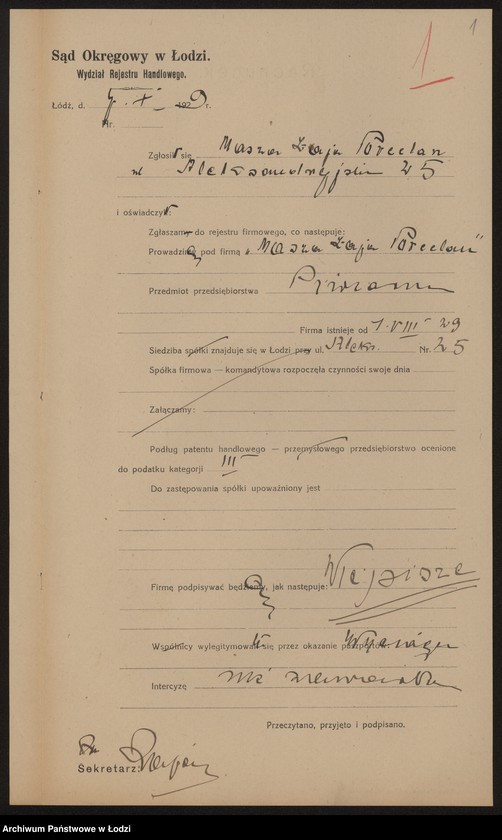 1
1
Sąd Okręgowy w Łodzi.
Wydział Rejestru Handlowego.
Łódź, d. 7. X. 1929 r.
Nr.
Zgłosił się Maszа Łaja Porcelan
ul Aleksandryjska 25
i oświadczył:
Zgłaszam do rejestru firmowego, co następuje:
Prowadzimy pod firmą „Masza Łaja Porcelan"
Przedmiot przedsiębiorstwa Piwiarnia
Firma istnieje od 1. VIII 29
Siedziba spółki znajduje się w Łodzi przy ul. Aleks. Nr. 25
Spółka firmowa — komandytowa rozpoczęła czynności swoje dnia
Załączamy:
Podług patentu handlowego — przemysłowego przedsiębiorstwo ocenione
do podatku kategorji III
Do zastępowania spółki upoważniony jest
Firmę podpisywać będziemy, jak następuje: Niepisze
Wspólnicy wylegitymowali się przez okazanie paszportów.
Intercyzę nie zawierała
Przeczytano, przyjęto i podpisano.
Sekretarz:
Archiwum Państwowe w Łodzi